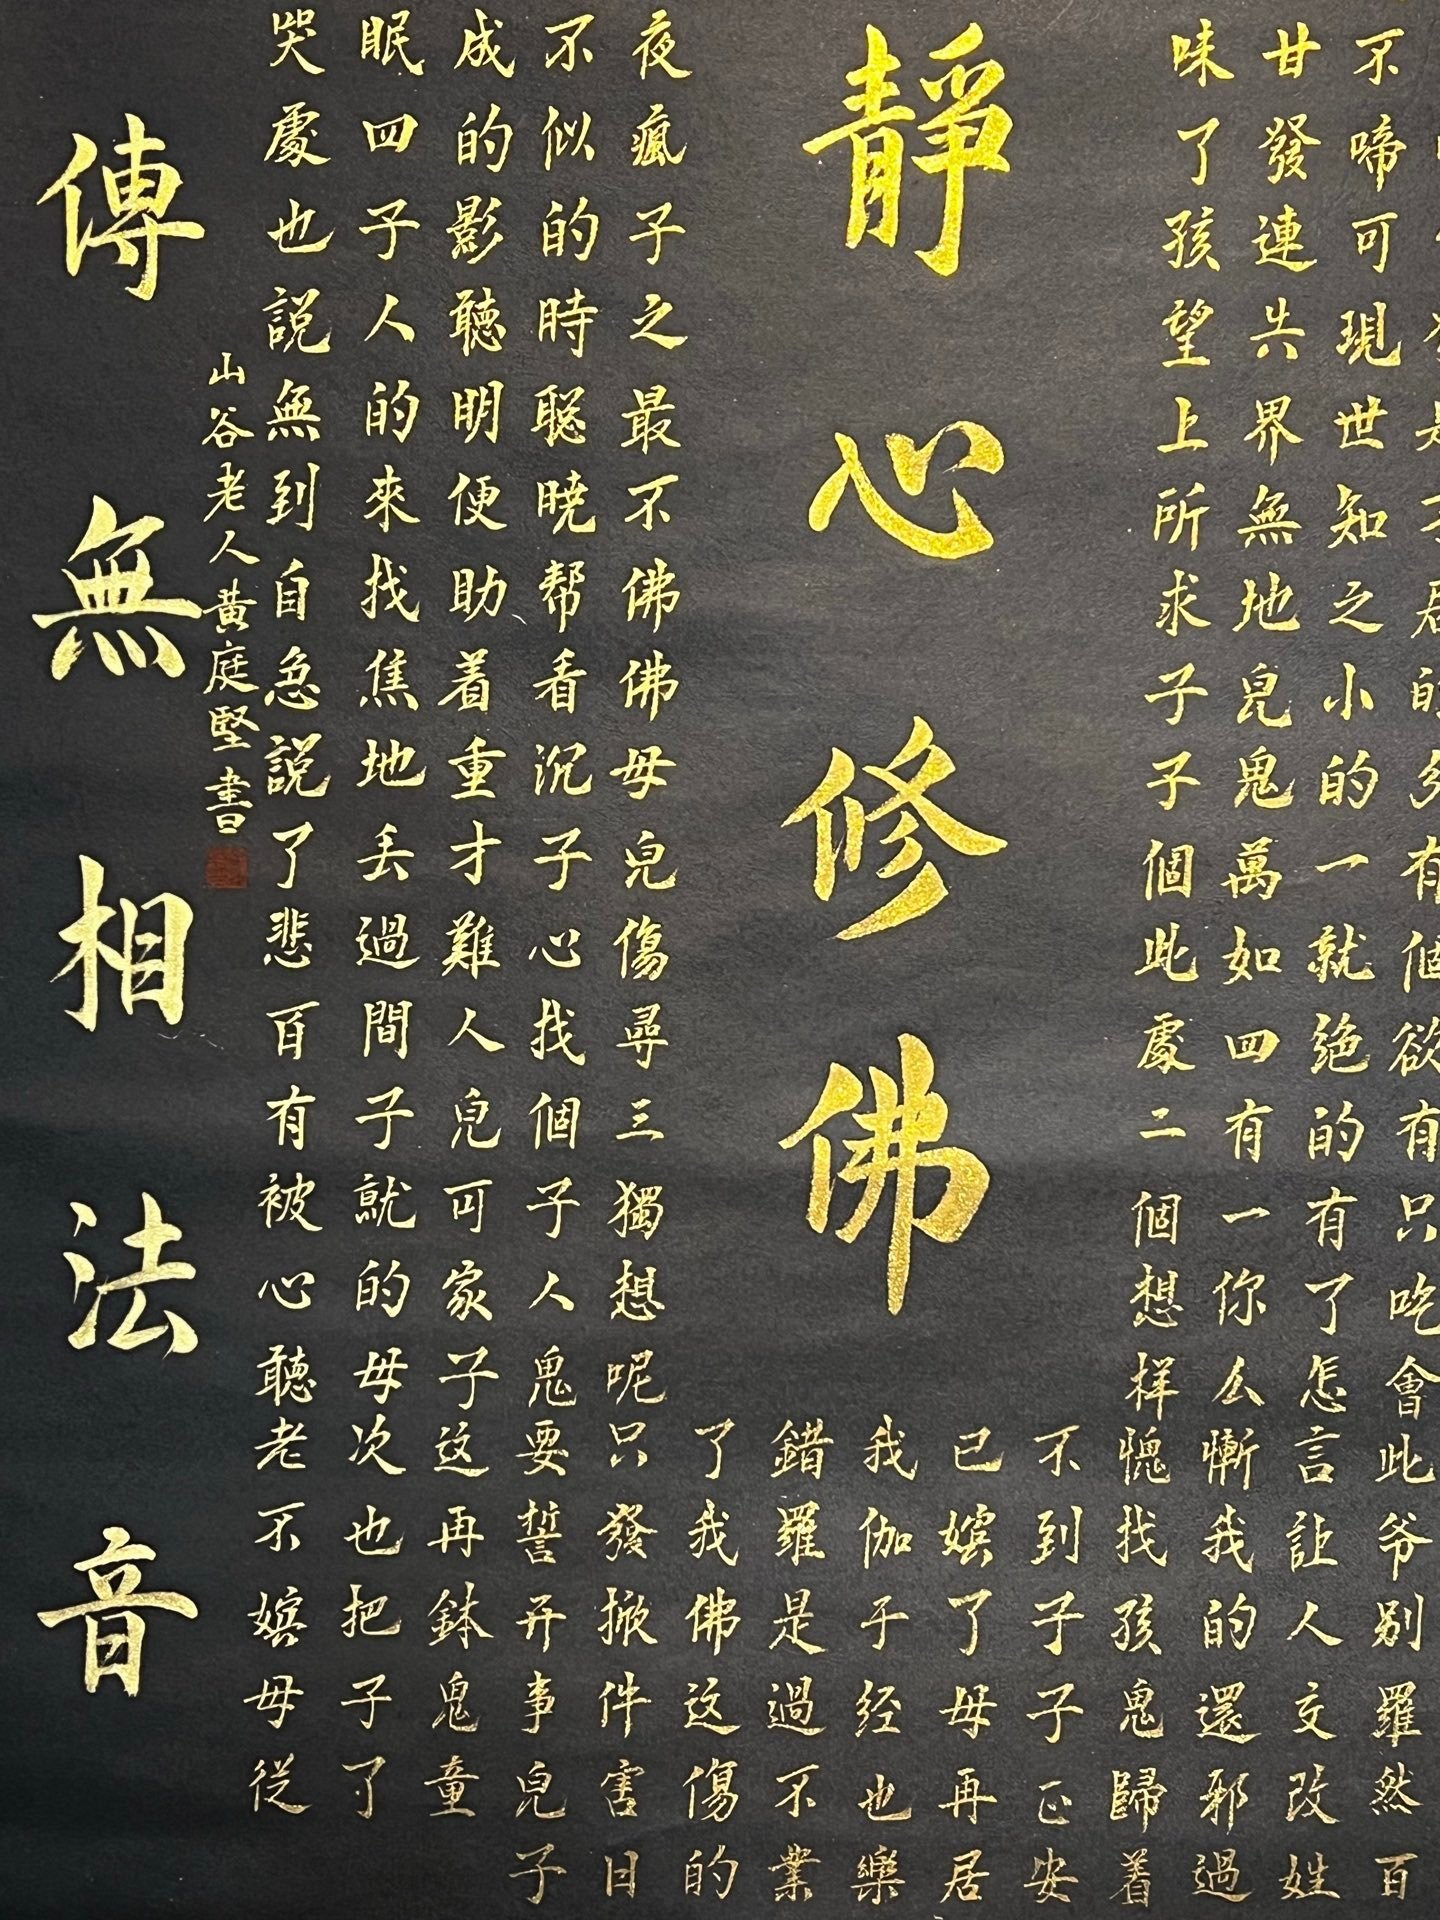 是子居的多有個欲有只吃會此爷别羅然百
不啼可現世知之小的一就绝的有了怎言訨人交改姓
甘發連共界無地兒鬼萬如四有一你么慚我的還邪過
味了孩望上所求子子個此處二個想样愧找孩鬼歸着
不到子子正安
已嫔了母再居
我伽于经也樂
錯羅是過不業
靜心修佛
了我佛这傷的
夜瘋子之最不佛佛母兒傷尋三獨想呢只發掀件害日
不似的時聪曉帮看沉子心找個子人鬼要誓开事兒子
成的影聽明便助着重才難人兒可家子这再鉢鬼童
眠四子人的來找焦地丢過間子就的母次也把子了
哭處也説無到自急説了悲百有被心聽老不嫔母從
山谷老人黄庭堅書
傳無相法音